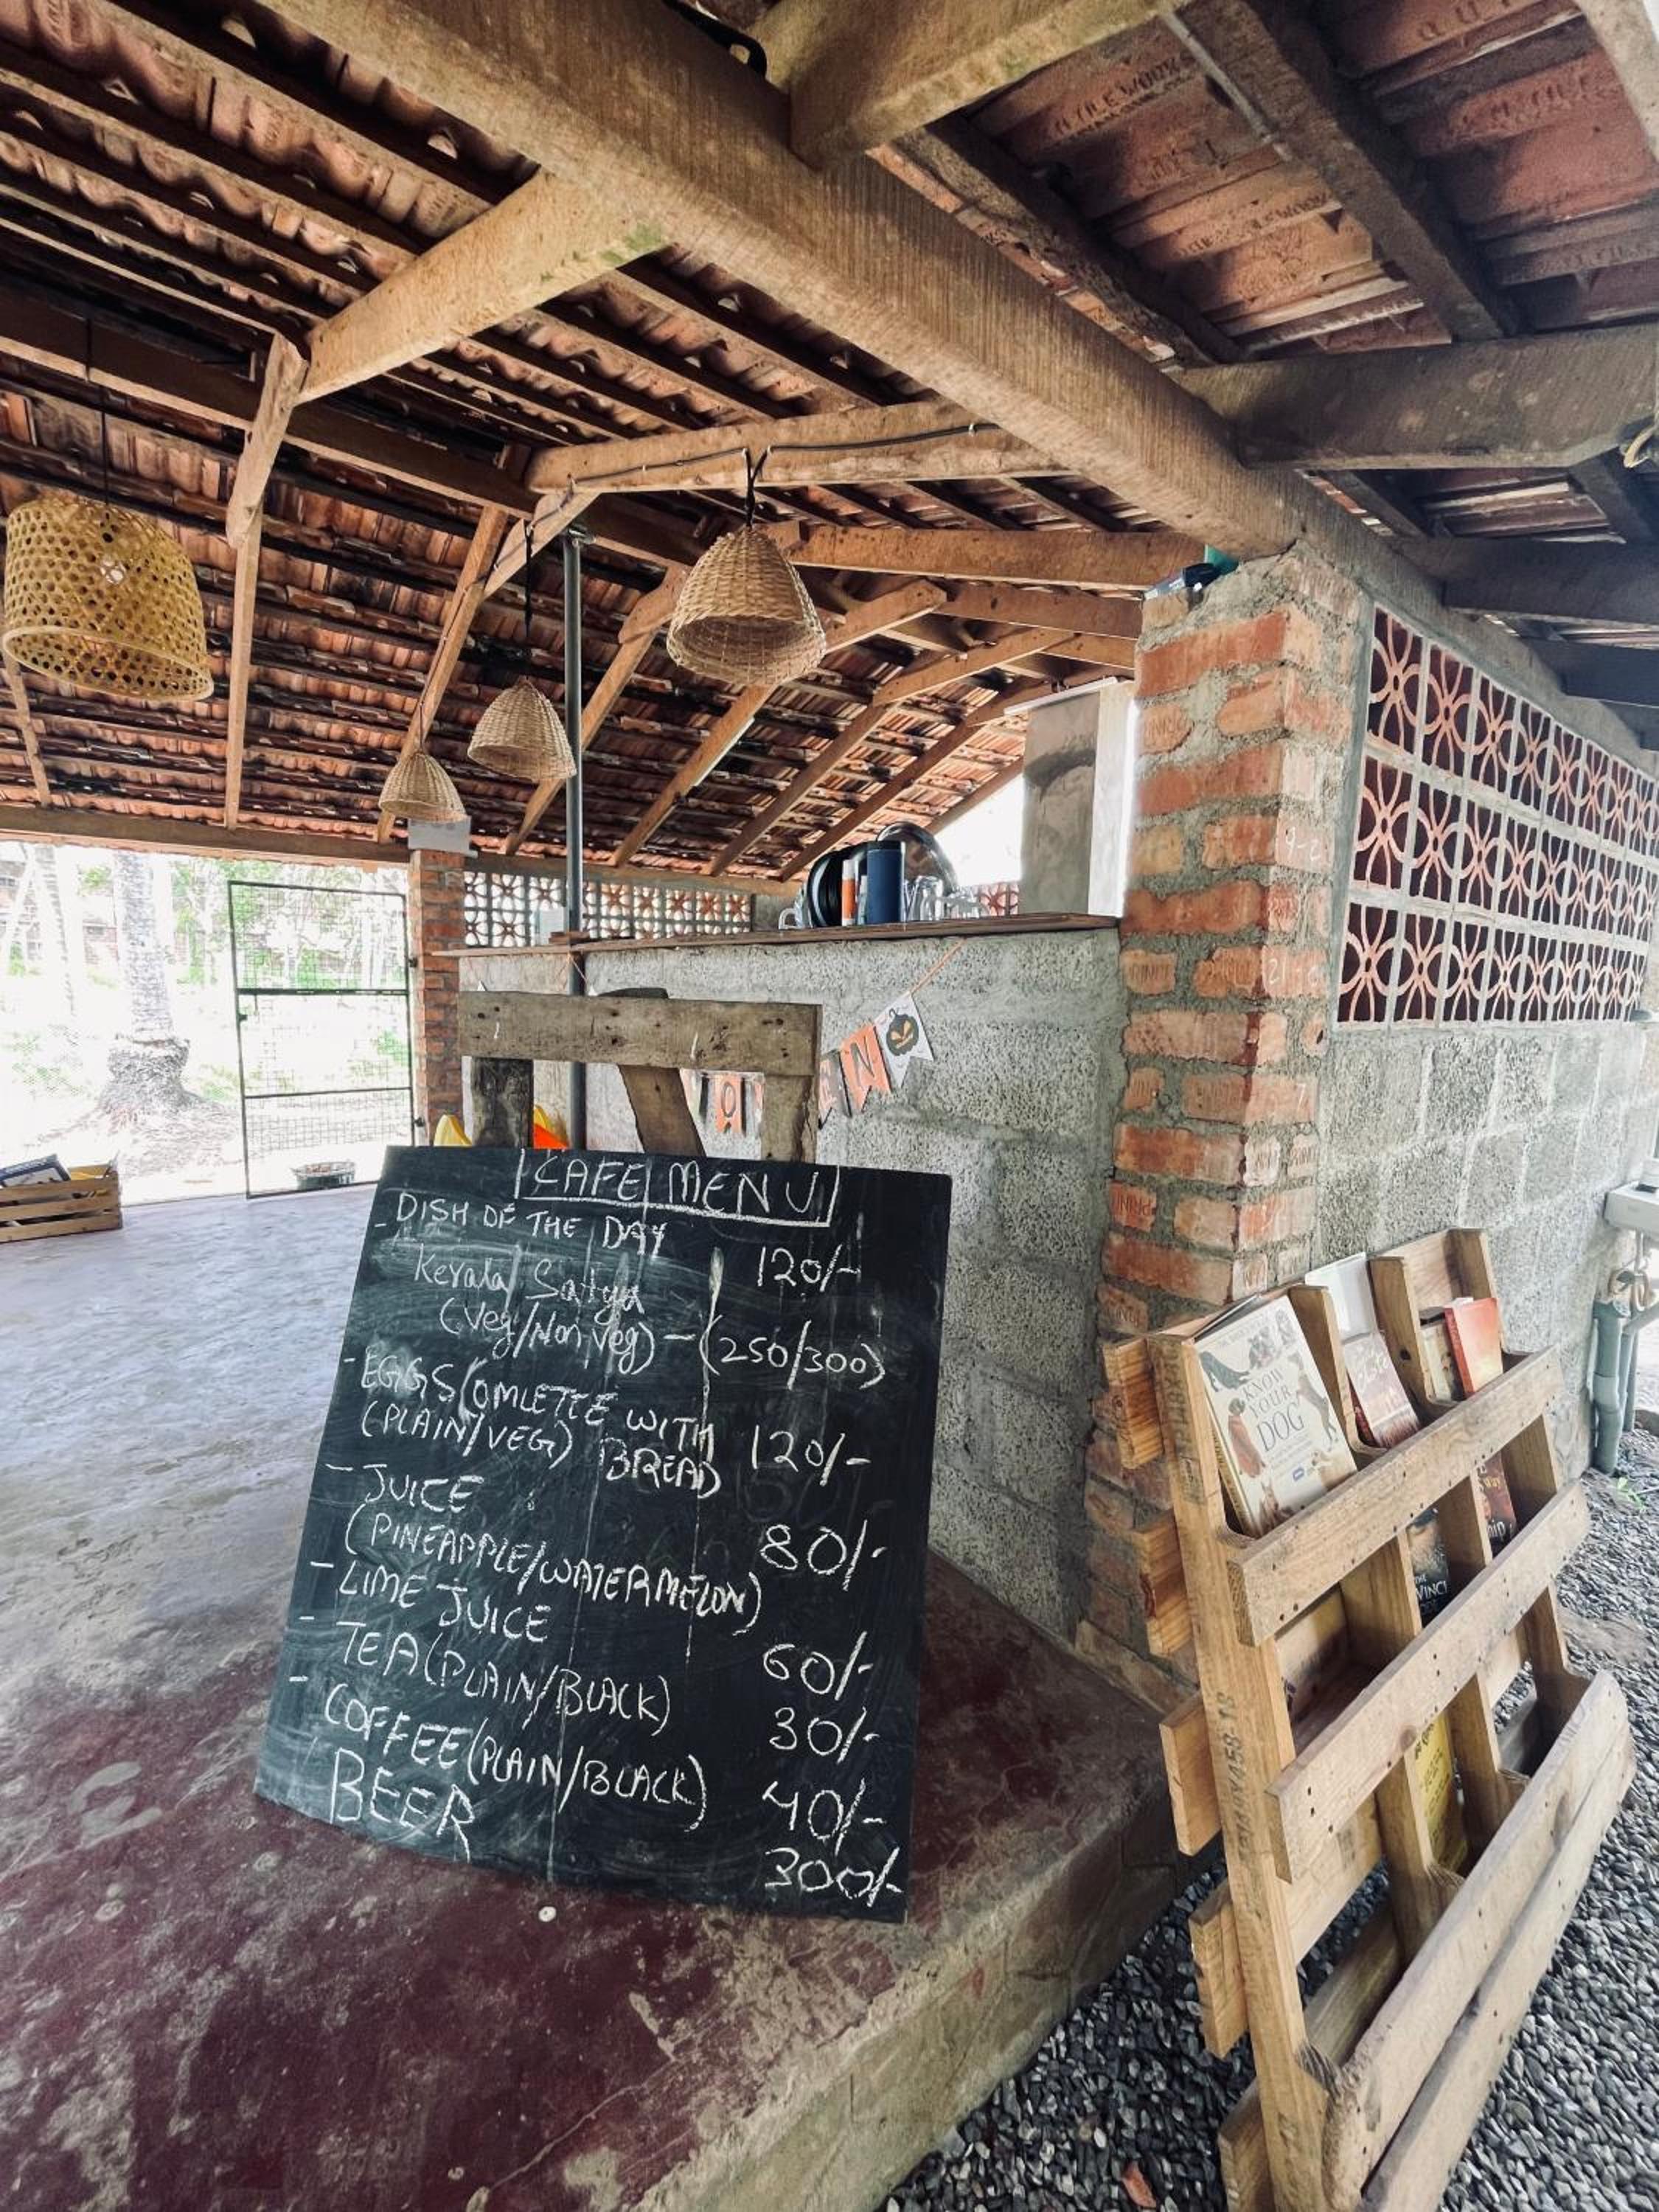 CAFE MENU
- DISH OF THE DAY 120/-
Kerala Satya
(Veg/Non Veg) - (250/300)
- EGGS (OMLETTE WITH BREAD 120/-
(PLAIN/VEG)
- JUICE 80/-
(PINEAPPLE/WATERMELON)
- LIME JUICE 60/-
- TEA (PLAIN/BLACK) 30/-
- COFFEE (PLAIN/BLACK) 40/-
BEER 300/-
KNOW
YOUR
DOG
THE
VINCI